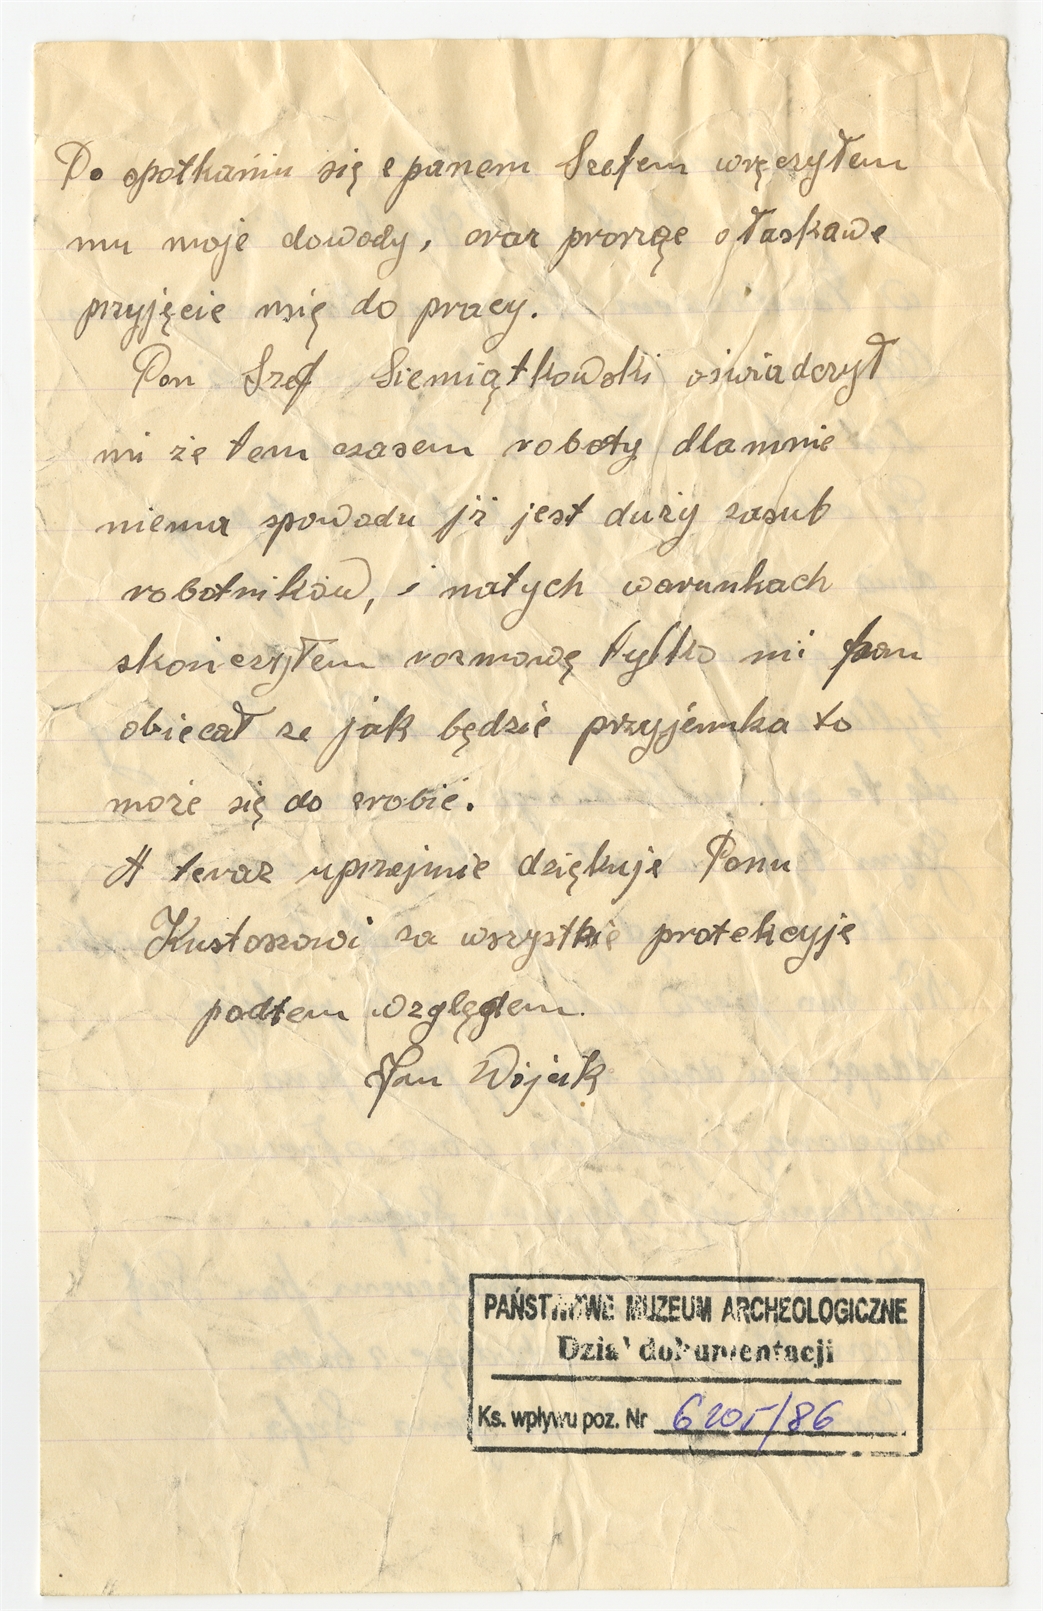 Po spotkaniu się z panem Szefem wręczyłem
mu moje dowody, oraz proszęe o łaskawe
przyjęcie mię do pracy.
Pan Szef Siemiątkowski oświadczył
mi że tem czasem roboty dlamnie
niema spowodu iż jest duży zasub
robotników, i natych warunkach
skończyłem rozmowę tylko mi pan
obiecał ze jak będzie przyjemka to
może się do zrobić.
A teraz uprzejmie dziękuje Panu
Kustoszowi za wszystkie protekcyje
podtem względem.
Jan Wójcik
PAŃSTWOWE MUZEUM ARCHEOLOGICZNE
Dział dokumentacji
Ks. wpływu poz. Nr 6205/86